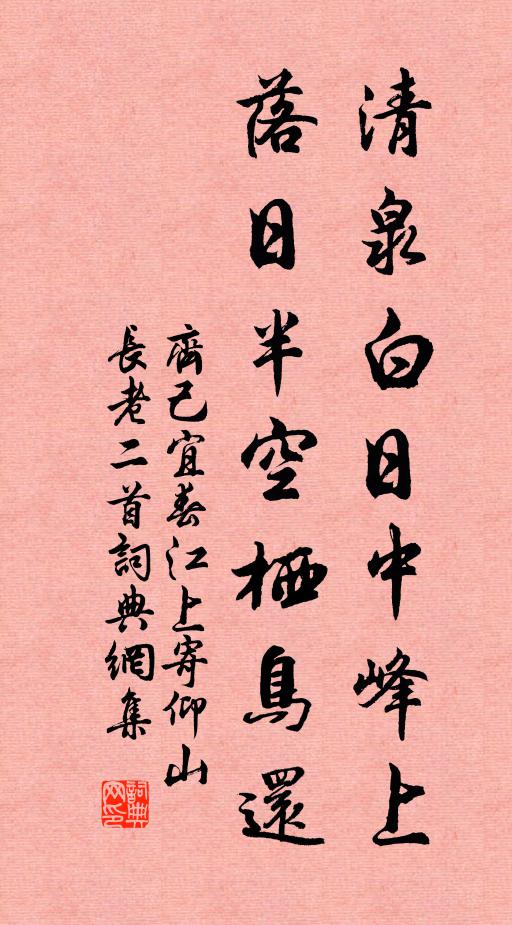 清泉白日中峰上
落日半空栖鳥還
齊己宜春江上寄仰山
長老二首詞典網集
詞典
网印